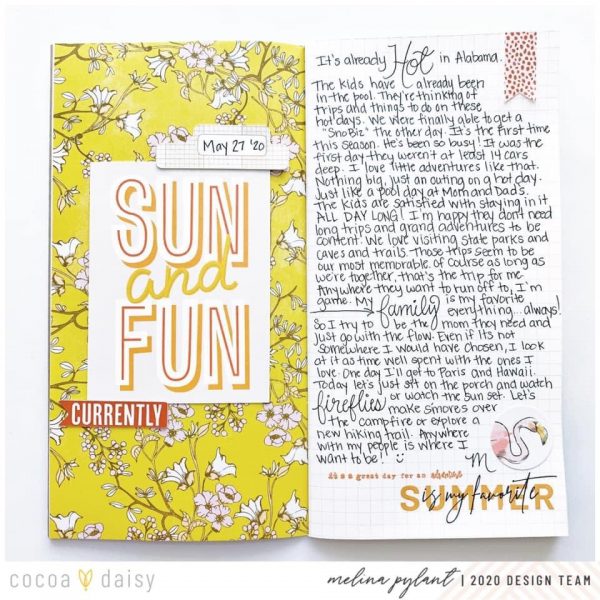 May 27 '20
SUN
and
FUN
CURRENTLY
It's already Hot in Alabama.
The kids have already been
in the pool. They're thinking of
trips and things to do on these
hot days. We were finally able to get a
"SnoBiz" the other day. It's the first time
this season. He's been so busy! It was the
first day they weren't at least 14 cars
deep. I love little adventures like that.
Nothing big, just an outing on a hot day.
Just like a pool day at Mom and Dad's.
The kids are satisfied with staying in it
ALL DAY LONG! I'm happy they don't need
long trips and grand adventures to be
content. We love visiting state parks and
caves and trails. Those trips seem to be
our most memorable. Of course as long as
we're together, that's the trip for me.
Anywhere they want to run off to, I'm
game. My family is my favorite
everything...always!
So I try to be the mom they need and
just go with the flow. Even if its not
somewhere I would have chosen, I look
at it as time well spent with the ones I
love. One day I'll get to Paris and Hawaii.
Today let's just sit on the porch and watch
fireflies or watch the sun set. Let's
make s'mores over
the campfire or explore a
new hiking trail. Anywhere
with my people is where I
want to be!
M
it's a great day for an adventure
SUMMER
is my favorite
cocoa daisy
melina pylant | 2020 DESIGN TEAM